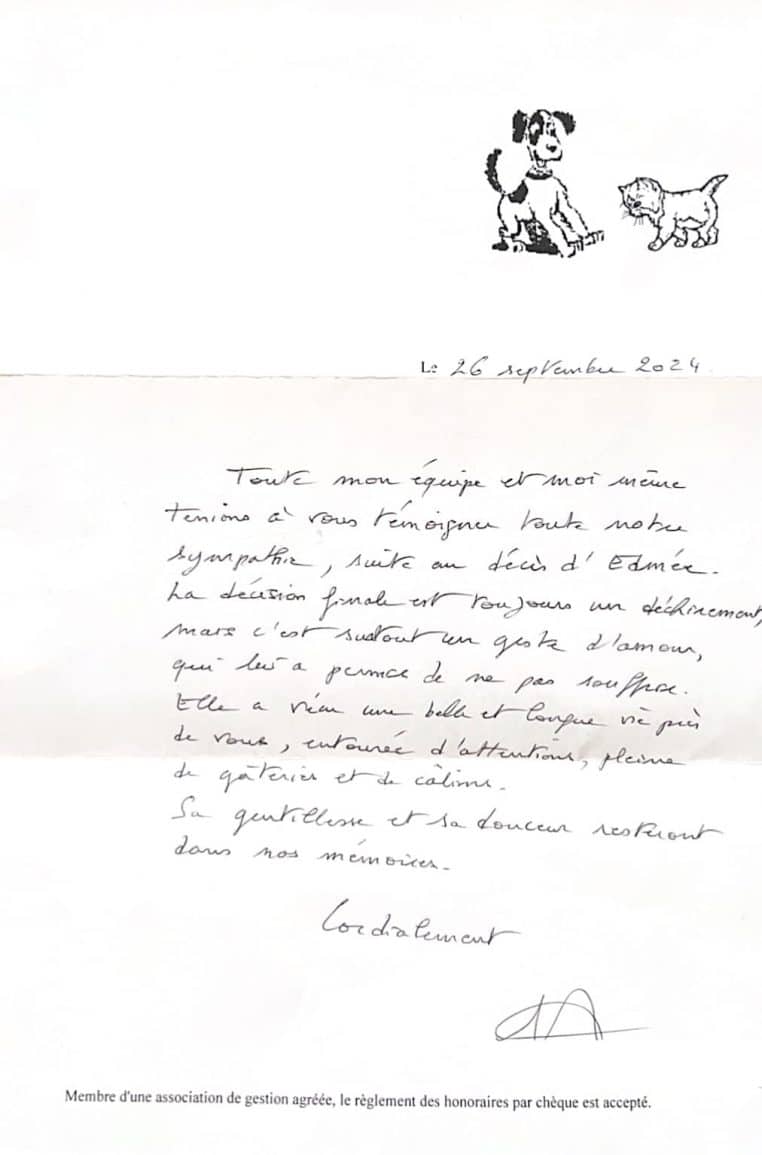 Le 26 septembre 2024
Toute mon équipe et moi même
tenions à vous témoigner toute notre
sympathie, suite au décès d'Edmée.
La décision finale est toujours un déchirement,
mais c'est surtout un geste d'amour,
qui lui a permis de ne pas souffrir.
Elle a vécu une belle et longue vie près
de vous, entourée d'attentions, pleine
de gâteries et de câlins.
Sa gentillesse et sa douceur resteront
dans nos mémoires.
Cordialement
Membre d'une association de gestion agréée, le règlement des honoraires par chèque est accepté.